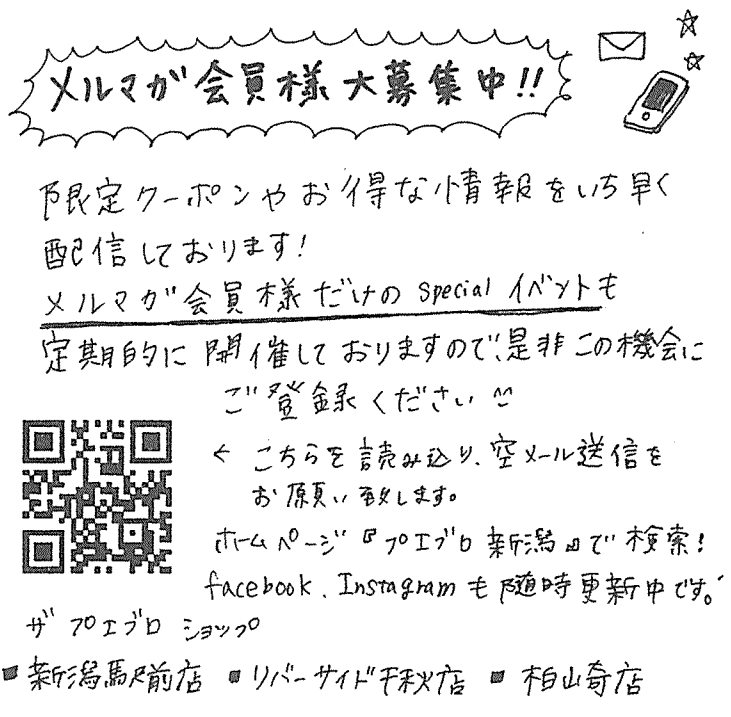 メルマガ会員様大募集中!!
限定クーポンやお得な情報をいち早く
配信しております!
メルマガ会員様だけのSpecialイベントも
定期的に開催しておりますので、是非この機会に
ご登録ください
← こちらを読み込り、空メール送信を
お願い致します。
ホームページ『プエブロ新潟』で検索!
facebook、Instagramも随時更新中です。
ザ プエブロ ショップ
■新潟駅前店 ■リバーサイド千秋店 ■柏崎店